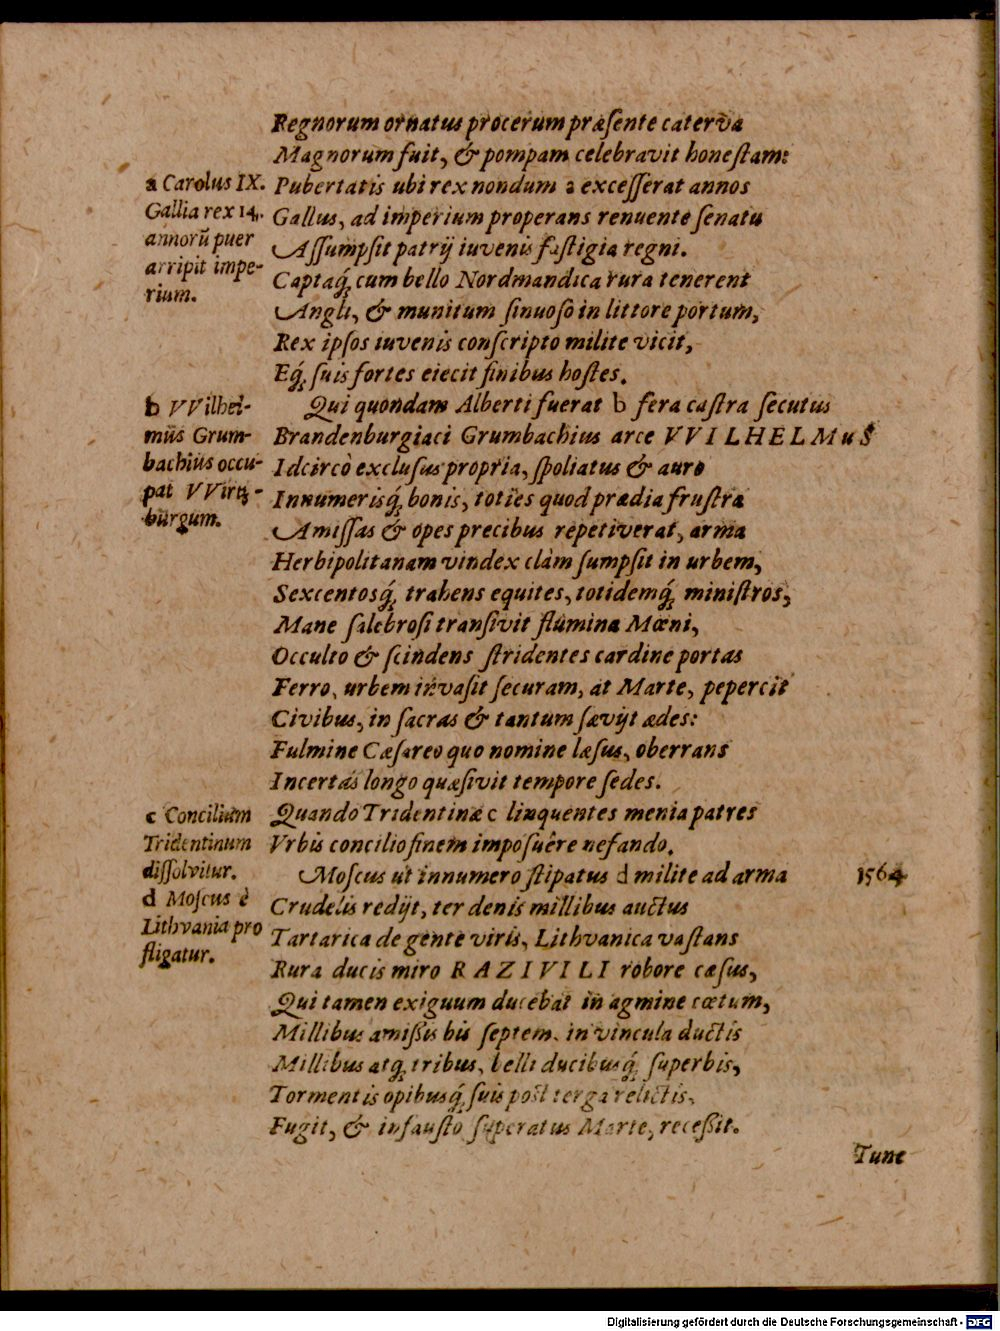 Regnorum ornatus procerum præſente caterva
Magnorum fuit, & pompam celebravit honeſtam:
a Carolus IX.
Gallia rex 14.
annorũ puer
arripit impe-
rium.
Pubertatis ubi rex nondum a exceſſerat annos
Gallus, ad imperium properans renuente ſenatu
Aſſumpſit patrij iuvenis faſtigia regni.
Captaq́; cum bello Nordmandica rura tenerent
Angli, & munitum ſinuoſo in littore portum,
Rex ipſos iuvenis conſcripto milite vicit,
Eq́; ſuis fortes eiecit finibus hoſtes.
b VVilhel-
mus Grum-
bachius occu-
pat VVirtz-
burgum.
Qui quondam Alberti fuerat b fera caſtra ſecutus
Brandenburgiaci Grumbachius arce VVILHELMuS
Idcircò excluſus propria, ſpoliatus & auro
Innumerisq́; bonis, toties quod prædia fruſtra
Amiſſas & opes precibus repetiverat, arma
Herbipolitanam vindex clàm ſumpſit in urbem,
Sexcentosq́; trahens equites, totidemq́; miniſtros,
Mane ſalebroſi tranſivit flumina Mœni,
Occulto & ſcindens ſtridentes cardine portas
Ferro, urbem invaſit ſecuram, at Marte, pepercit
Civibus, in ſacras & tantum ſævijt ædes:
Fulmine Cæſareo quo nomine læſus, oberrans
Incertás longo quæſivit tempore ſedes.
c Concilium
Tridentinum
diſſolvitur.
d Moſcus è
Lithvania pro
fligatur.
Quando Tridentinæ c linquentes menia patres
Vrbis concilio finem impoſuêre nefando.
Moſcus ut innumero ſtipatus d milite ad arma
1564
Crudelis redijt, ter denis millibus auctus
Tartarica de gente viris, Lithvanica vaſtans
Rura ducis miro RAZIVILI robore cæſus,
Qui tamen exiguum ducebat in agmine cœtum,
Millibus amiſſis bis ſeptem, in vincula ductis
Millibus atq́; tribus, belli ducibusq́; ſuperbis,
Tormentis opibusq́; ſuis poſt terga relictis,
Fugit, & infauſto ſuperatus Marte, receſſit.
Tunc
Digitalisierung gefördert durch die Deutsche Forschungsgemeinschaft - DFG